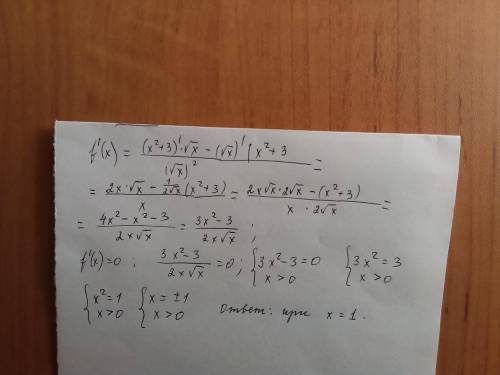 f'(x) = ((x²+3)'·√x − (√x)'(x²+3)/(√x)² =
= (2x·√x − 1/(2√x)(x²+3))/x = (2x√x·2√x − (x²+3))/(x·2√x) =
= (4x²−x²−3)/(2x√x) = (3x²−3)/(2x√x) ;
f'(x)=0 ; (3x²−3)/(2x√x) =0 ; { 3x²−3=0 x>0 { 3x²=3 x>0
{ x²=1 x>0 { x=±1 x>0 Ответ: при x=1.